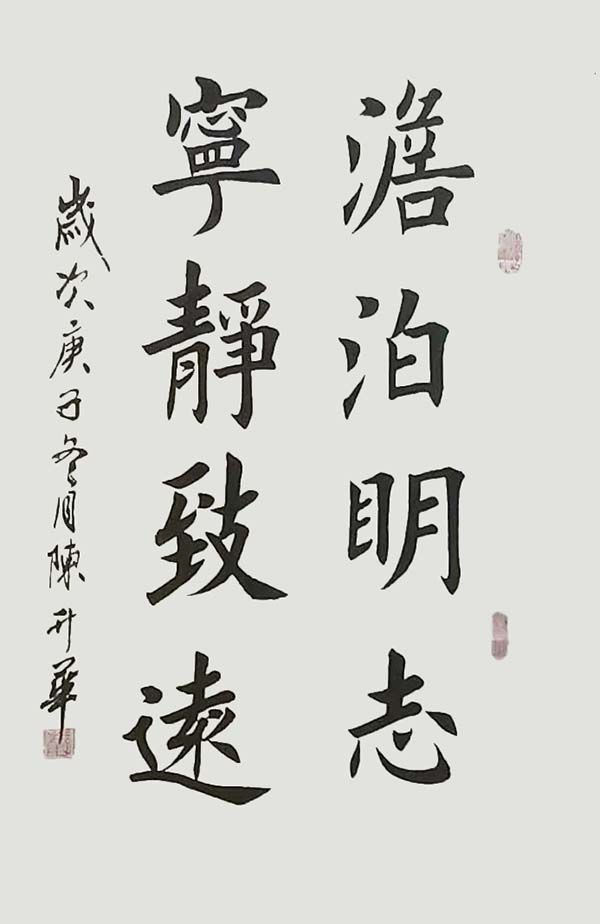 澹泊明志
寧靜致遠
歲次庚子冬月陳升華